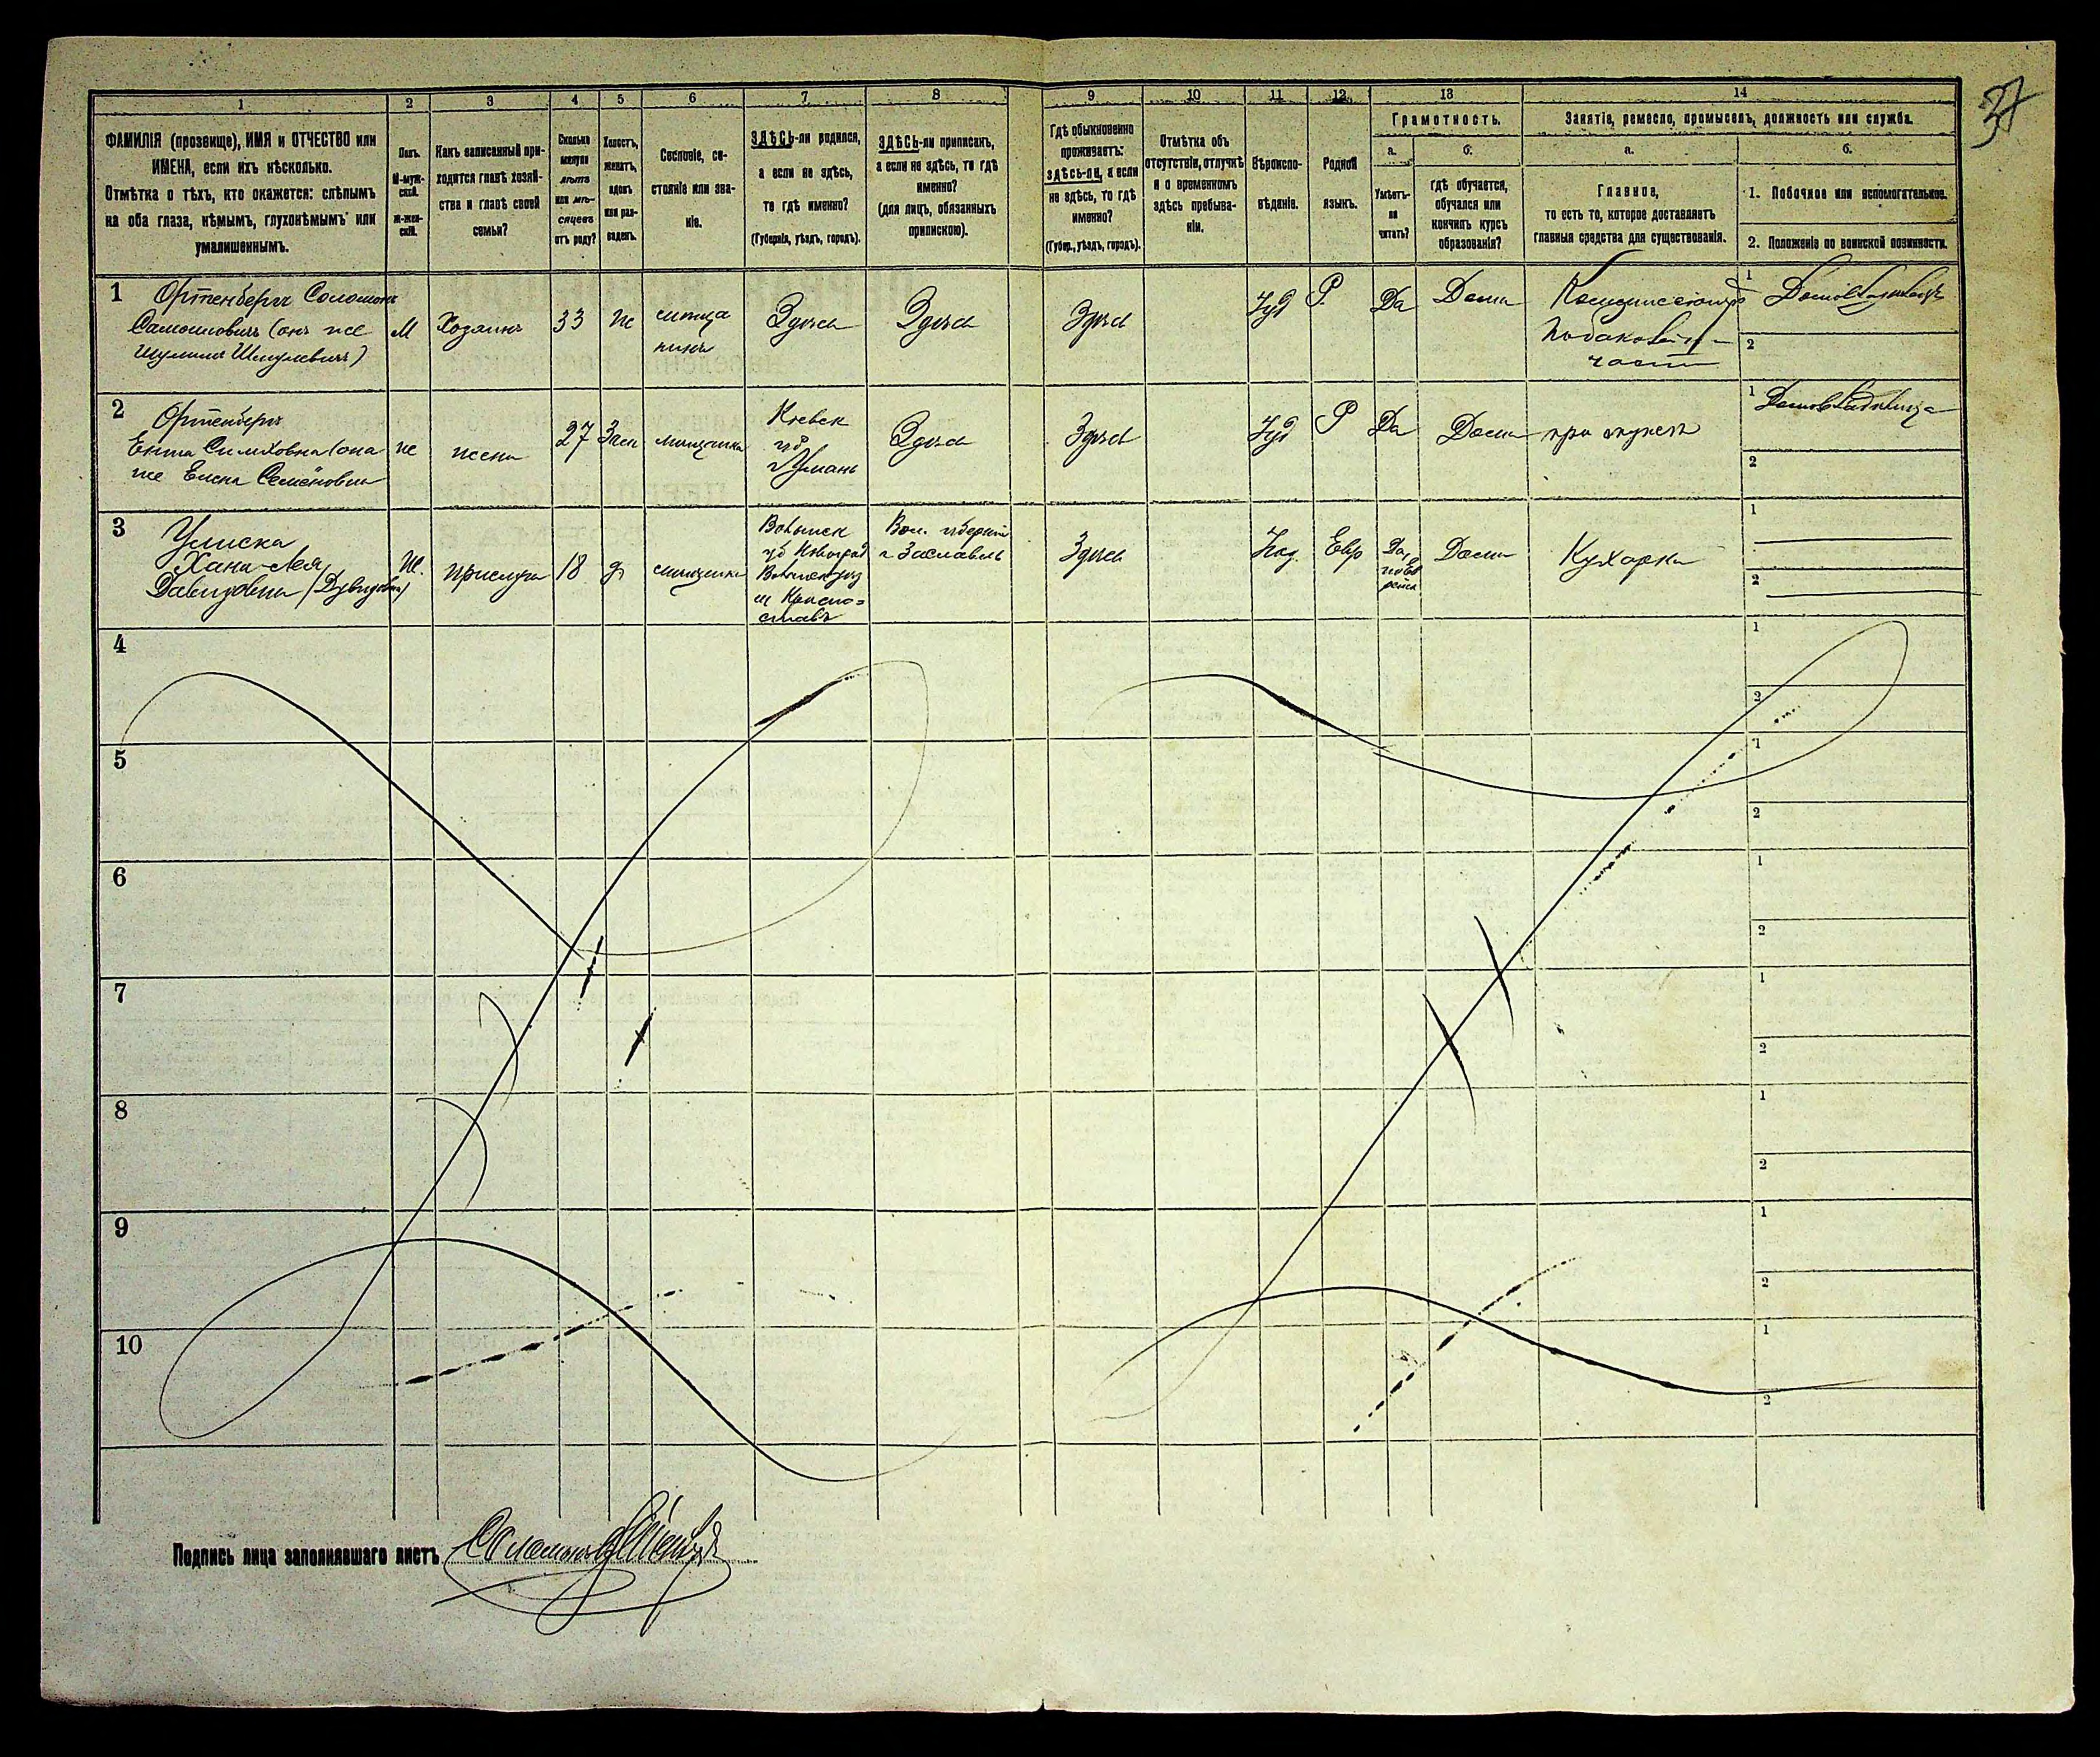 37
1 2 3 4 5 6 7 8 9 10 11 12 13 14
ФАМИЛІЯ (прозвище), ИМЯ и ОТЧЕСТВО или
ИМЕНА, если ихъ нѣсколько.
Отмѣтка о тѣхъ, кто окажется: слѣпымъ
на оба глаза, нѣмымъ, глухонѣмымъ или
умалишеннымъ.
Полъ.
М-муж-
ской.
ж-жен-
скій.
Какъ записанный при-
ходится главѣ хозяй-
ства и главѣ своей
семьи?
Сколько
минуло
лѣтъ
или мѣ-
сяцевъ
отъ роду?
Холостъ,
женатъ,
вдовъ
или раз-
веденъ.
Сословіе, со-
стояніе или зва-
ніе.
ЗДѢСЬ-ли родился,
а если не здѣсь,
то гдѣ именно?
(Губернія, уѣздъ, городъ).
ЗДѢСЬ-ли приписанъ,
а если не здѣсь, то гдѣ
именно?
(для лицъ, обязанныхъ
припискою).
Гдѣ обыкновенно
проживаетъ:
здѣсь-ли, а если
не здѣсь, то гдѣ
именно?
(Губер., уѣздъ, городъ).
Отмѣтка объ
отсутствіи, отлучкѣ
и о временномъ
здѣсь пребыва-
ніи.
Вѣроиспо-
вѣданіе.
Родной
языкъ.
Грамотность.
а.
Умѣетъ-
ли
читать?
б.
гдѣ обучается,
обучался или
кончилъ курсъ
образованія?
Занятіе, ремесло, промыселъ, должность или служба.
а.
Главное,
то есть то, которое доставляетъ
главныя средства для существованія.
б.
1. Побочное или вспомогательное.
2. Положеніе по воинской повинности.
1
Ортенбергъ Соломонъ
Самойловичъ (онъ же
Шулимъ Шмулевичъ)
М
Хозяинъ
33
Здѣсь
Здѣсь
Здѣсь
Іуд
Р
Да
Дома
1
Домовладѣлецъ
2
2
Ортенбергъ
Ента Симховна (она
же Елена Семёновна
же
жена
27
Зам
мѣщанка
Киевск
губ
г Умань
Здѣсь
Здѣсь
Іуд
Р
Да
Дома
при мужѣ
1
Домовладѣлица
2
3
Хана-Лея
Давидовна
Ж.
прислуга
18
д
мѣщанка
Волынск
губ Новоград
Волынск уѣзд
м Красно=
ставъ
Вол. губерніи
г Заславль
Здѣсь
Іуд.
Евр
Да,
по Ев
рейск
Дома
Кухарка
1
2
4
1
2
5
1
2
6
1
2
7
1
2
8
1
2
9
1
2
10
1
2
Подпись лица заполнявшаго листъ